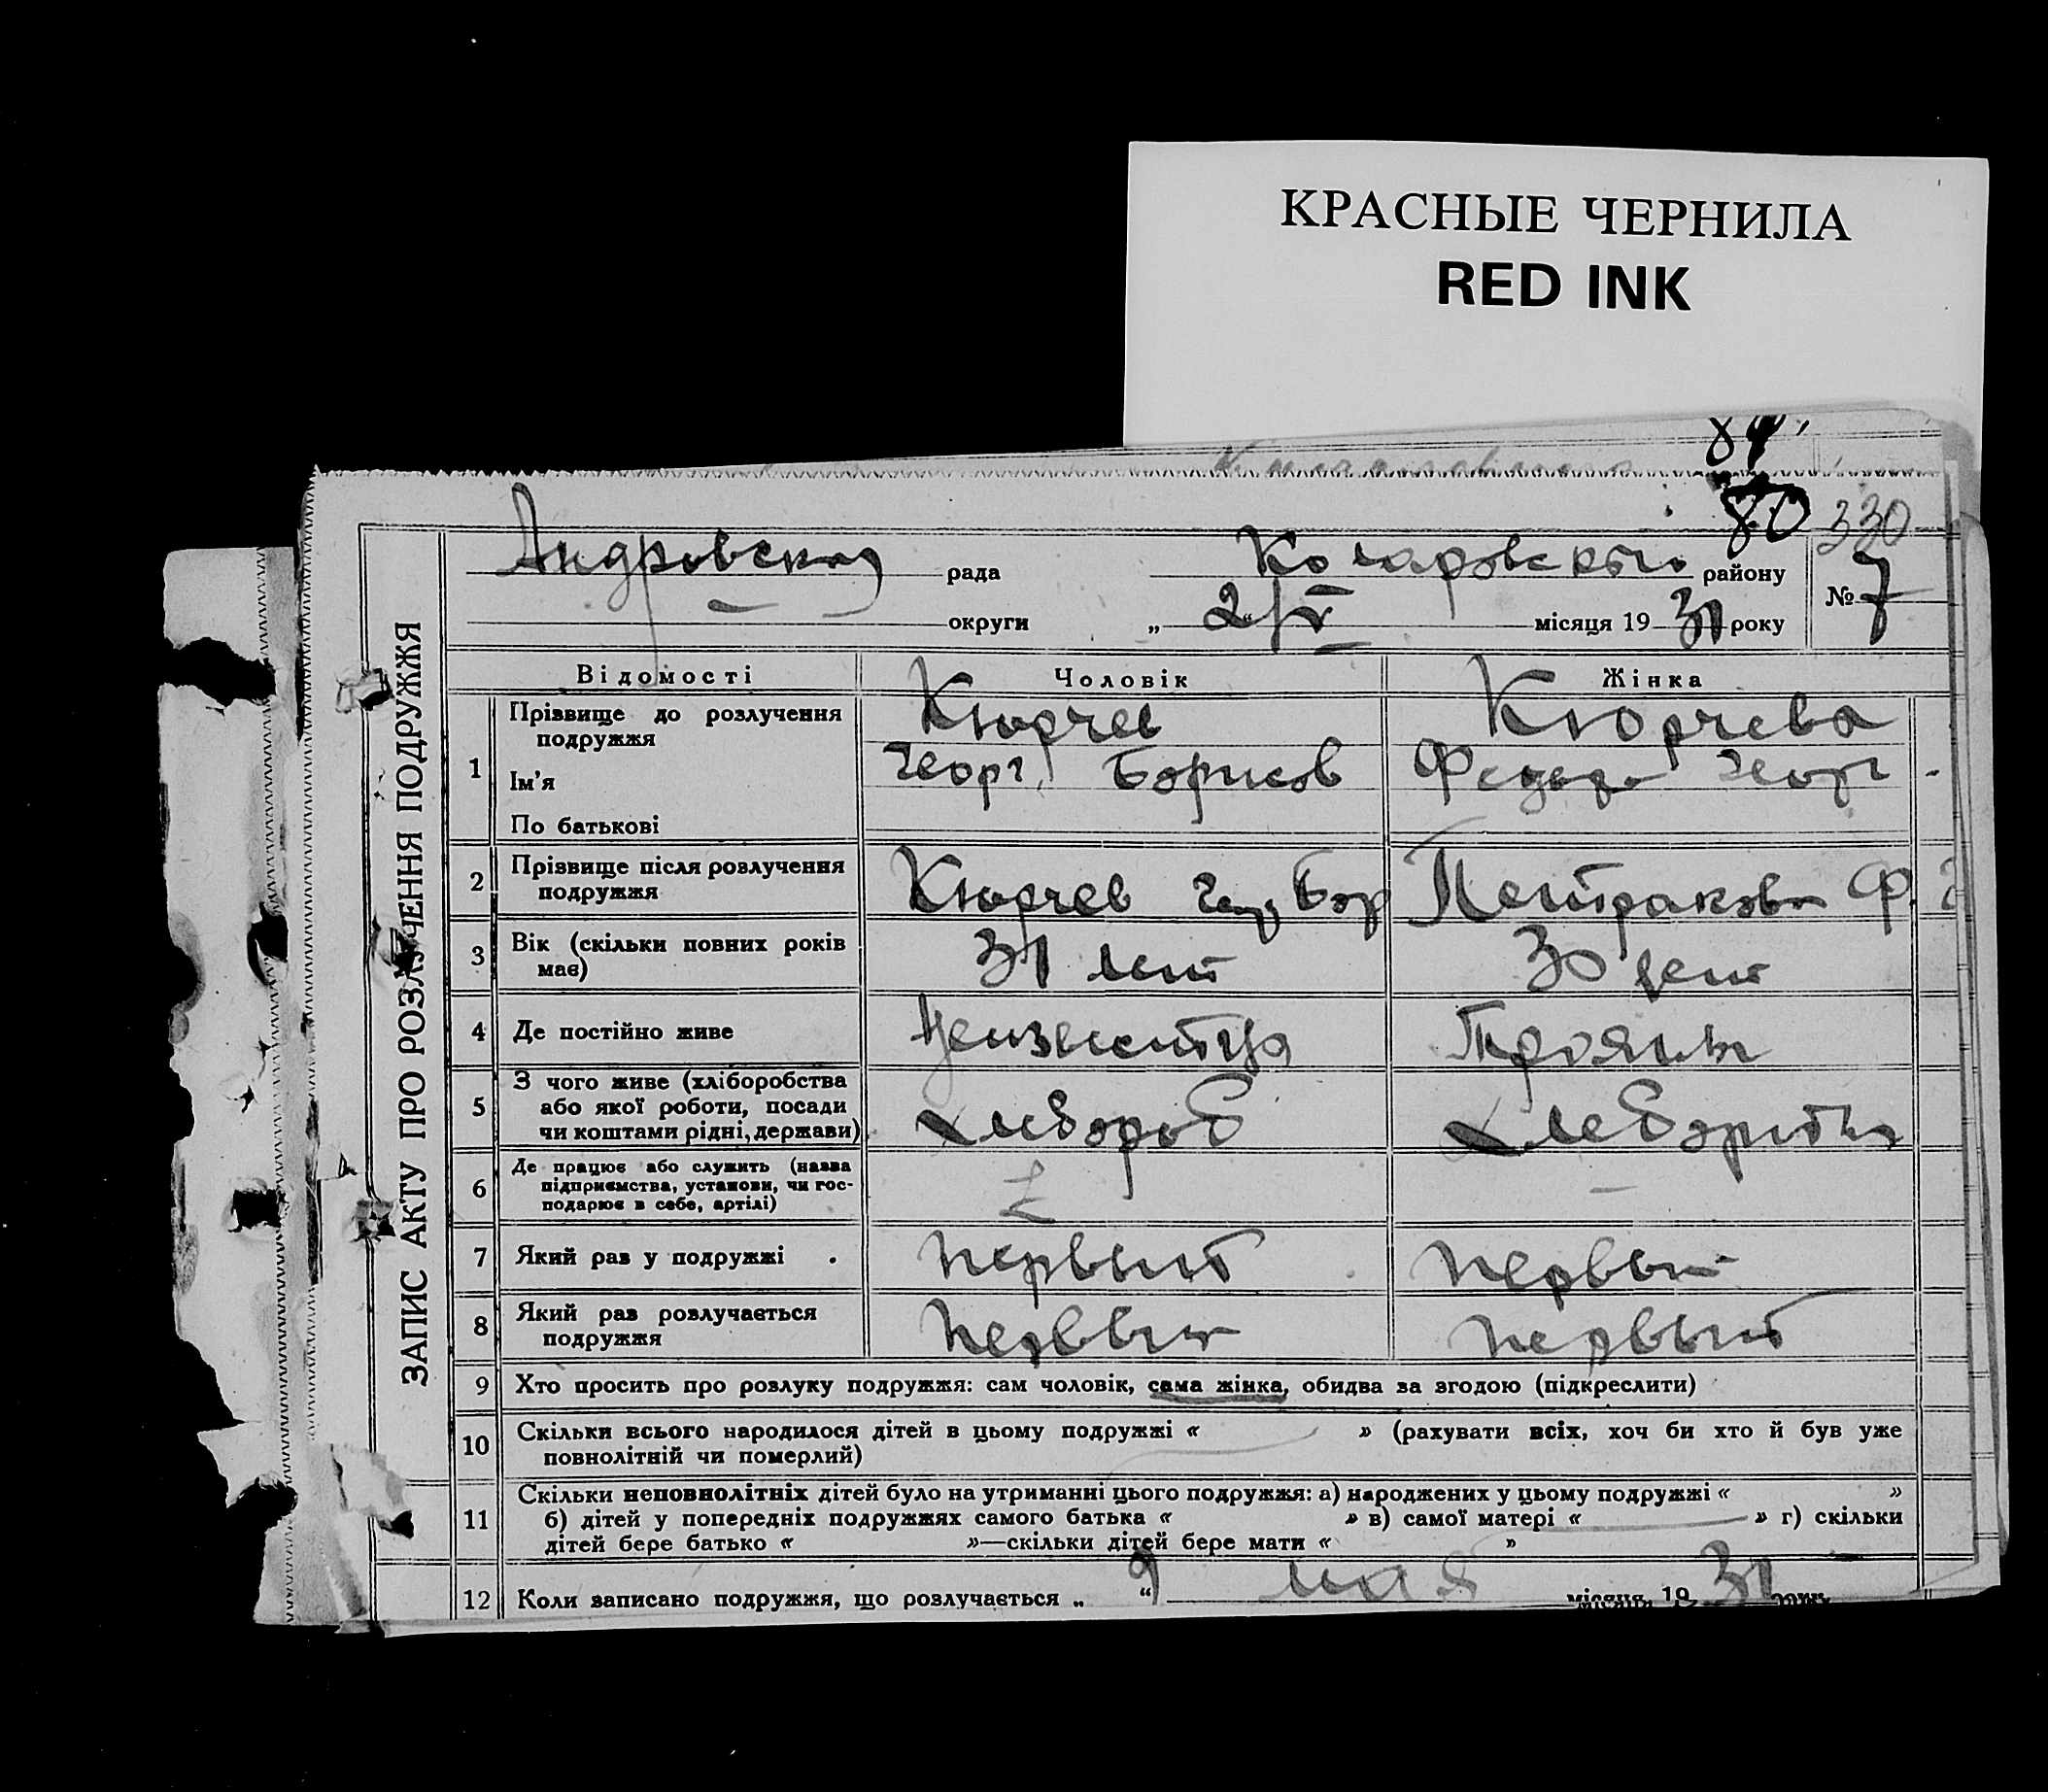 КРАСНЫЕ ЧЕРНИЛА
RED INK
84
80 330
Андровская рада района району
округи „ 2/V місяця 19 31 року № 7
ЗАПИС АКТУ ПРО РОЗЛУЧЕННЯ ПОДРУЖЖЯ
Відомості Чоловік Жінка
1 Прізвище до розлучення подружжя Кюрчев Кюрчева
Ім'я Георг. Борисов Георг
По батькові
2 Прізвище після розлучення подружжя Кюрчев Бор Петракова Ф. Г
3 Вік (скільки повних років має) 31 лет 30 лет
4 Де постійно живе Неизвестно Трояны
5 З чого живе (хліборобства або якої роботи, посади чи коштами рідні, держави) хлебороб хлеборобка
6 Де працює або служить (назва підприємства, установи, чи господарює в себе, артілі) –
7 Який рав у подружжі . первый первый
8 Який раз розлучається подружжя первый первый
9 Хто просить про розлуку подружжя: сам чоловік, сама жінка, обидва за згодою (підкреслити)
10 Скільки всього народилося дітей в цьому подружжі « » (рахувати всіх, хоч би хто й був уже
повнолітній чи померлий)
11 Скільки неповнолітніх дітей було на утриманні цього подружжя: а) народжених у цьому подружжі « »
б) дітей у попередніх подружжях самого батька « » в) самої матері « » г) скільки
дітей бере батько « »—скільки дітей бере мати « »
12 Коли записано подружжя, що розлучається „ 9 “ мая місяця 19 31 року